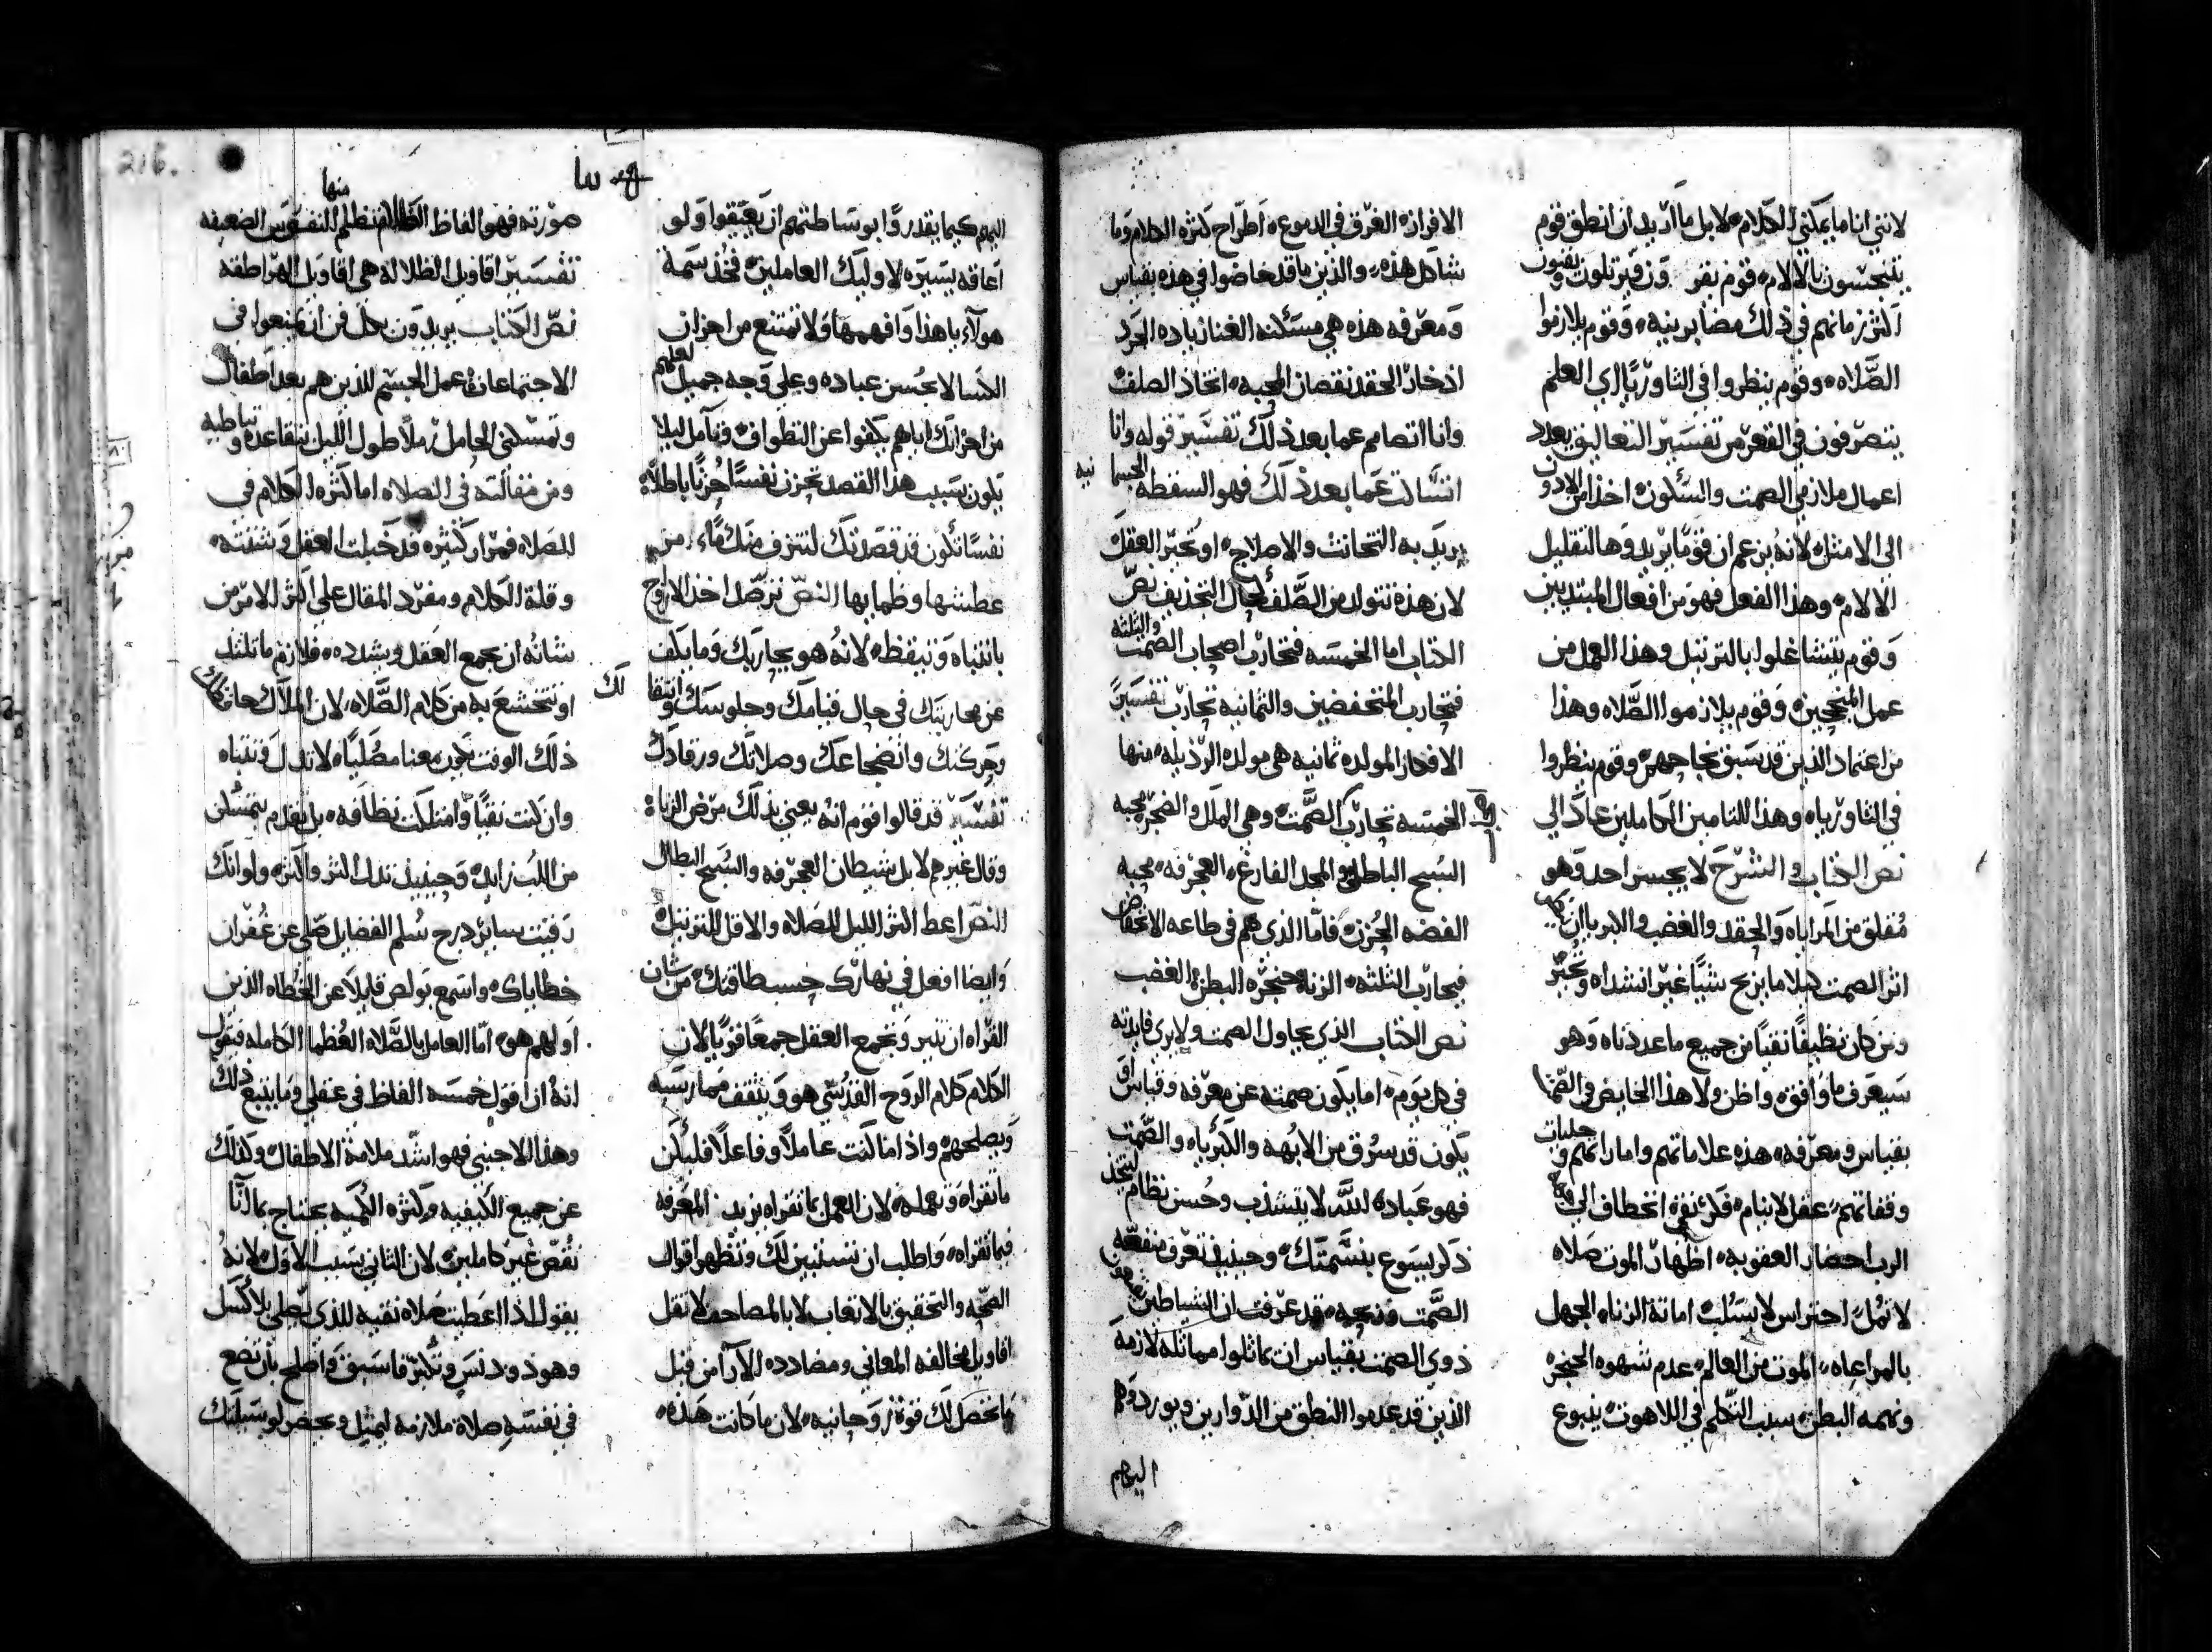 لانني انا ما يمكنني الكلام لا بل ما اريد ان انطق قوم
يتنجسون بالالام قوم
اكثر زمانهم في ذلك مضابرينه وقوم يلازموا
الصلاه وقوم ينظروا في الثاوريا اي العلم
يتصرفون في القعر من تفسير التعاليق بعدد
اعمال ملازمي الصمت والسكون اخذ من
الى الامثله لانه يزعم ان قوما يريدوها لتقليل
الالام وهذا الفعل فهو من افعال المبتديين
وقوم يتشاغلوا بالترتيل وهذا العمل من
عمل المنجحين وقوم يلازموا الصلاه وهذا
من اعتماد الذين قد سبق نجاحهم وقوم ينظروا
في الثاورياه وهذا للتامين الكاملين عاد الى
نص الكتاب والشرح لا يجسر احد وهو
مقلق من المراياه والحقد والغضب والكبريا ان
اثر الصمت كيلا ما يربح شيا غير انشداه
ومن كان نظيفا نقيا من جميع ما عددناه وهو
سيعرف ما وافقه واظن ولا هذا الخايض في
بقياس ومعرفه هذه علاماتهم واماراتهم
وقفاتهم عقل لا ينام فكر نقي اختطاف الى
الرب احضار العقوبه اظهار الموت صلاه
لا تمل احتراس لا يسلب اماتة الزناه الجهل
بالمراعاه الموت من العالم عدم شهوه الحنجره
ونهمه البطن سبب التكلم في اللاهوت ينبوع
الافرازه الغرق في الدموع اطراح كثره الكلام وما
شاكل هذه والذين ما قد خاضوا في هذه بقياس
ومعرفه هذه هي مسكنه الغنا زياده الحرد
اذخار الحقد نقصان المحبه اتخاذ الصلف
وانا اتصامم عما بعد ذلك تفسير قوله وانا
انساكت عما بعد ذلك فهو السفطه
يريد به التخانث والاصلاح او تخير العقل
لان هذه تتولد من الصلف التجديف نص
الكتاب اما الخمسه فتحارب اصحاب الصمت والثلثه
فتحارب المنخفضين والثمانيه تحارب تفسير
الافكار المولده ثمانيه هي مولده الرذيله منها
الخمسه تحارب الصمت وهي الملل والضجر محبه
السبح الباطل والمجد الفارغ العجرفه محبه
الفضه الحزن فاما الذي هم في طاعه
فيحارب الثلثه الزنا حنجره البطن الغضب
نص الكتاب الذي يحاول الصمت ولا يرى فايدته
في كل يوم اما يكون صمته عن معرفه وقياس او
يكون قد سرق من الابهه والكبرياه والصمت
فهو عباده لله لا يتشذب وحسن نظام ليتحد
ذكر يسوع بنسمتك وحينيذ تعرف منفعه
الصمت ونجحه قد عرفت ان الشياطين
ذوي الصمت بقياس ان يماثلوا مماثله لازمه
الذين قد عدموا النطق من الدوارين ويوردوهم
اليهم
اليهم كيما يقدروا بوساطتهم ان يعيقوا ولو
اعاقه يسيره لاوليك العاملين فخذ سمة
هولآء يا هذا وافهمها ولا تمتنع من احزان
الكسالا بحسن عباده وعلى وجه جميل لعلهم
من احزانك اياهم يكفوا عن التطواف وتامل ليلا
يكون بسبب هذا القصد تحزن نفسا حزنا باطلا
نفسا تكون قد قصدتك لتنزف منك ماء من
عطشها وظمايها النص ترصد اخذ الاروح
بانتباه وتيقظ لانه هو يحاربك وما يكف
عن محاربتك في حال قيامك وجلوسك وانتقالك
وحركتك وانضجاعك وصلاتك ورقادك
تفسير قد قالوا قوم انه يعني بذلك مرض الزنا
وقال غيرهم لا بل شيطان العجرفه والسبح البطال
النص اعط اكثر الليل للصلاه والاقل للترتيل
وايضا افعل في نهارك حسب طاقتك من شان
القراه ان تنير وتجمع العقل جمعا قويا لان
الكلام كلام الروح القدسي هو ويثقف ممارسيه
ويصلحهم واذا ما كنت عاملا وفاعلا فليكن
ما تقراه وتعمله لان العمل بما تقراه يزيد المعرفه
فيما تقراه واطلب ان تستبين لك وتظهر اقوال
الصحه والتحقيق بالاتعاب لا بالمصاحف لا تقل
اقاويل مخالفه المعاني ومضادده الآرا من قبل
ما تحصل لك قوة روحانيه لان ما كانت هذه
صورته فهو الفاظ الظلام منها تظلم النفوس الضعيفه
تفسير اقاويل الظلاله هي اقاويل الهراطقه
نص الكتاب يريدون بكل فن ان يمنعوا في
الاجتماعات عمل الجسم للذين هم بعد اطفال
وتمسكني الحامل رملا طول الليل بتقاعده وتباطيه
ومن مقالته في الصلاه اما كثره الكلام في
الصلاه فمرار كثيره قد خبلت العقل وشتته
وقلة الكلام ومفرد المقال على اكثر الامر من
شانه ان يجمع العقل ويشدده فلازم ما تلتذ
او تتخشع به من كلام الصلاه لان الملاك حافظك
ذلك الوقت يكون معنا مصليا لا تدل وتتباه
وان كنت نقيا وامتلكت نظافه بل تقدم بتمسكن
من اللب زايد وحينيذ تدل اكثر واكثر ولو انك
رقيت ساير درج سلم الفضايل صلي عن غفران
خطاياك واسمع بولص قايلا عن الخطاه الذين
اولهم هو اما العامل بالصلاه العظما الكامله فيقول
انه ان اقول خمسه الفاظ في عقلي وما يتبع ذلك
وهذا الاجنبي فهو اشد ملامة الاطفال وكذلك
عن جميع الكيفيه وكثره الكميه يحتاج بما اننا
نقص غير كاملين لان الثاني بسبب الاول لانه
يقول اذا اعطيت صلاه نقيه للذي يصلي بلا كسل
وهو ذو دنس وتكثر ما سبق واصلح بان تضع
في نفسه صلاة ملازمه ليمثل ويحضر لو سبيلك